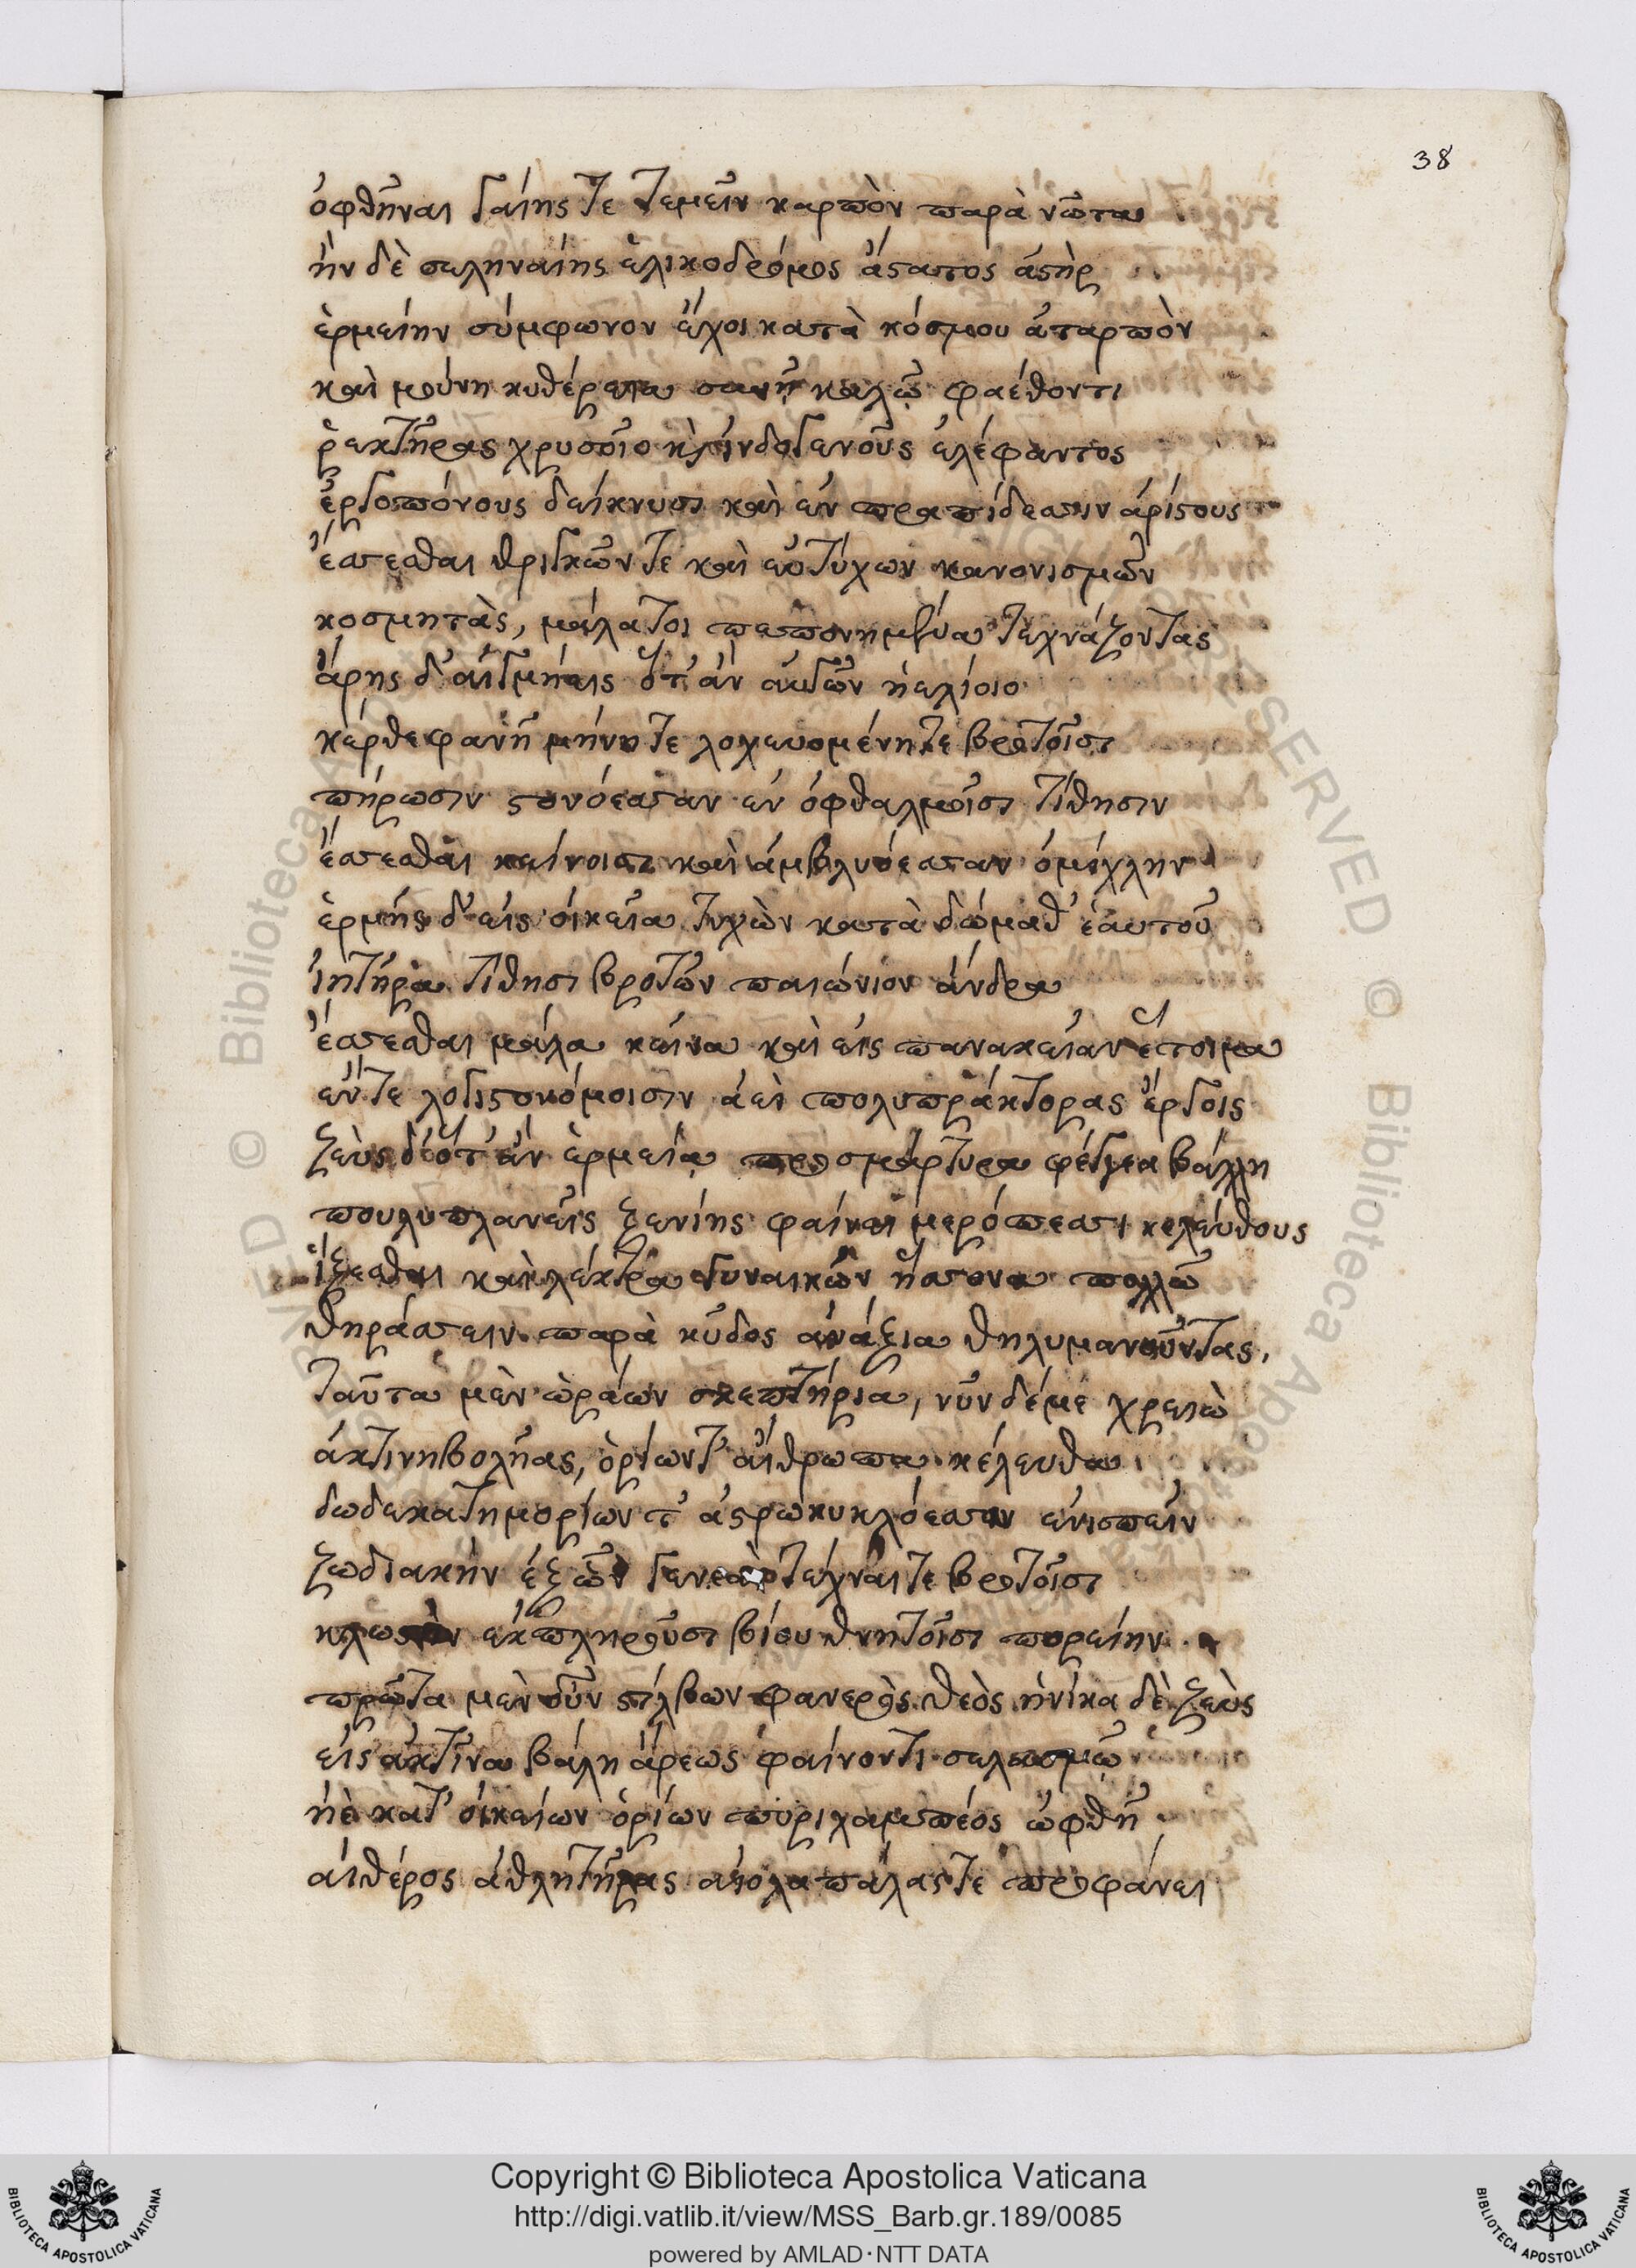 38
ὀφθῆναι γαίης τε τεμεῖν καρπὸν παρὰ νῶτα
ἢν δὲ σεληναίης ἑλικοδρόμος ἄστατος ἀστὴρ
ἑρμείην σύμφωνον ἔχοι κατὰ κόσμου ἀταρπὸν
καὶ μούνη κυθέρεια φανῇ καλῷ φαέθοντι
ῥεκτῆρας χρυσοῖο καὶ ἰνδογενοῦς ἐλέφαντος
ἐργοπόνους δείκνυσι καὶ ἐν πραπίδεσσιν ἀρίστους
ἔσσεσθαι θριγκῶν τε καὶ εὐτύχων κανονισμῶν
κοσμητὰς, μάλα τοι πεπονημένα τεχνάζοντας
ἄρης δ' αἰγμήεις ὅτ' ἂν αὐγῶν ἠελίοιο
κέρθε φανῇ μήνη τε λοχευομένη τε βροτοῖσι
πήρωσιν στονόεσσαν ἐν ὀφθαλμοῖσι τίθησιν
ἔσσεσθαι κείνοισι καὶ ἀμβλυόεσσαν ὀμίχλην
ἑρμῆς δ' εἰς οἰκεῖα τυχὼν κατὰ δώμαθ' ἑαυτοῦ
ἰητῆρα τίθησι βροτῶν παιώνιον ἄνδρα
ἔσσεσθαι μάλα κεῖνα καὶ εἰς πανακείαν ἕτοιμα
εὖτε λογιστονόμοισιν ἀεὶ πολυπράκτορας ἔργοις
ζεὺς δέ ὅτ' ἂν ἑρμείᾳ προσμάρτυρα φέγγεα βάλλῃ
πουλυπλανεῖς ξενίης φαίνει μερόπεσσι κελεύθους
ἵξεσθαι καὶ λέκτρα γυναικῶν ἥσσονα πολλῷ
θηράσσειν παρὰ κῦδος ἀνάξια θηλυμανοῦντας,
ταῦτα μὲν ὡράων σκεπτήρια, νῦν δέ με χρειὼ
ἀκτινηβολῆας, ὁρίων τ' αἴθρωπα κέλευθα
δωδεκατημορίων τ' ἀστρωκυκλόεσσαν ἐνισπεῖν
ζωδιακὴν ἐξ ὧν γενεαὶ τέχναι τε βροτοῖσι
ἐκπληροῦσι βίου θνητοῖσι πορείην
πρῶτα μὲν οὖν στίλβων φανερὸς θεὸς ἡνίκα δὲ ζεὺς
εἰς ἀκτῖνα βάλῃ ἄρεως φαίνοντι σελασμῷ
ἠὲ κατ' οἰκείων ὁρίων πυριλαμπέος ὠφθῇ
αἰθέρος ἀθλητῆρας αἰολαπάλας τε προφάνει
Copyright © Biblioteca Apostolica Vaticana
http://digi.vatlib.it/view/MSS_Barb.gr.189/0085
powered by AMLAD·NTT DATA